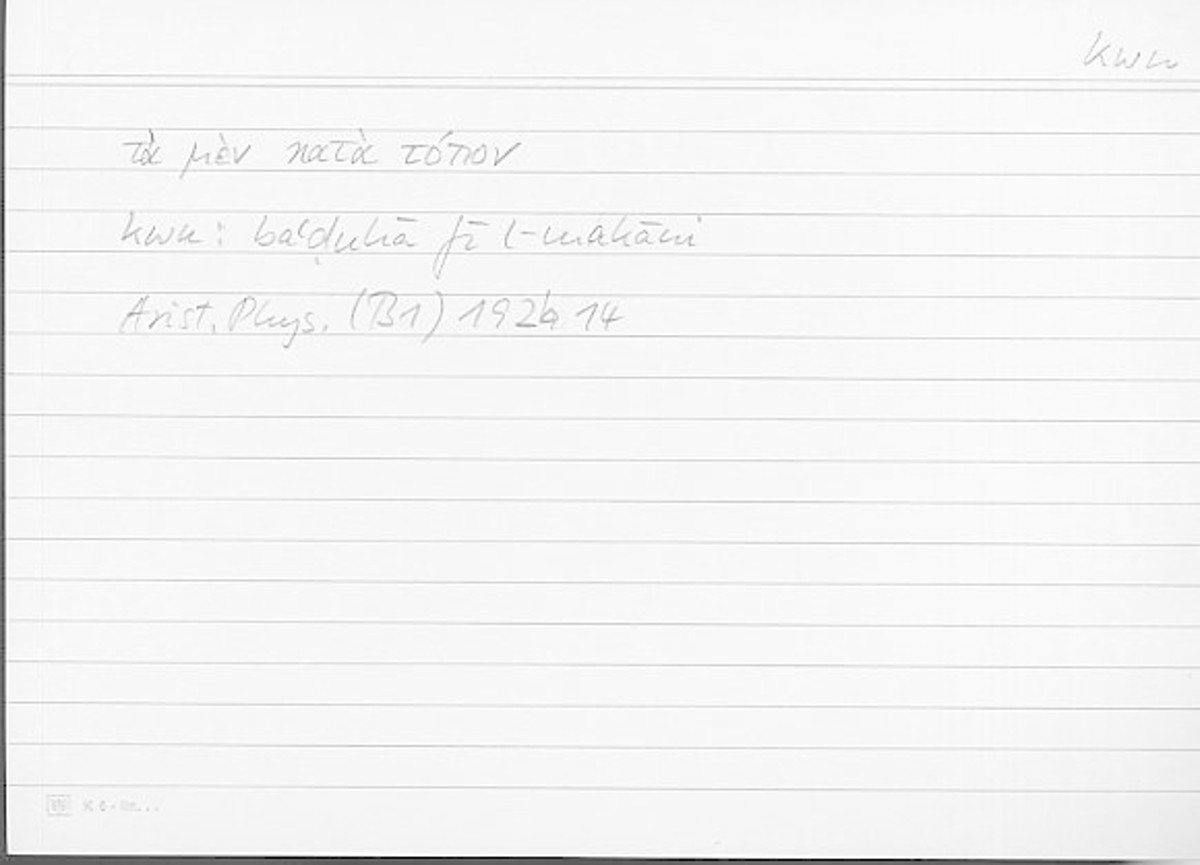 kwn
τὰ μὲν κατὰ τόπον
kwn: baʿḍuhā fī l-makāni
Arist. Phys. (B1) 192b 14